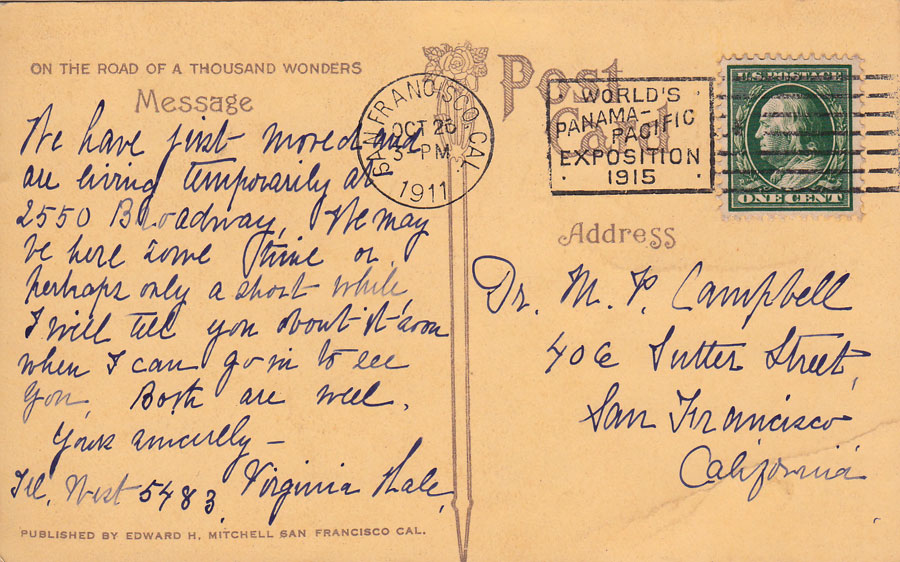 ON THE ROAD OF A THOUSAND WONDERS
Message
We have just moved and
are living temporarily at
2550 Broadway, We may
be here some time or
perhaps only a short while,
I will tell you about it soon
when I can go in to see
you. Both are well.
Yours sincerely –
Tel. West 5483 Virginia Hale,
PUBLISHED BY EDWARD H. MITCHELL SAN FRANCISCO CAL.
Post
Card
SAN FRANCISCO, CAL.
OCT 26
3-PM
1911
WORLD'S
PANAMA-
PACIFIC
EXPOSITION
1915
U.S. POSTAGE
ONE CENT
Address
Dr. M. P. Campbell
406 Sutter Street,
San Francisco
California